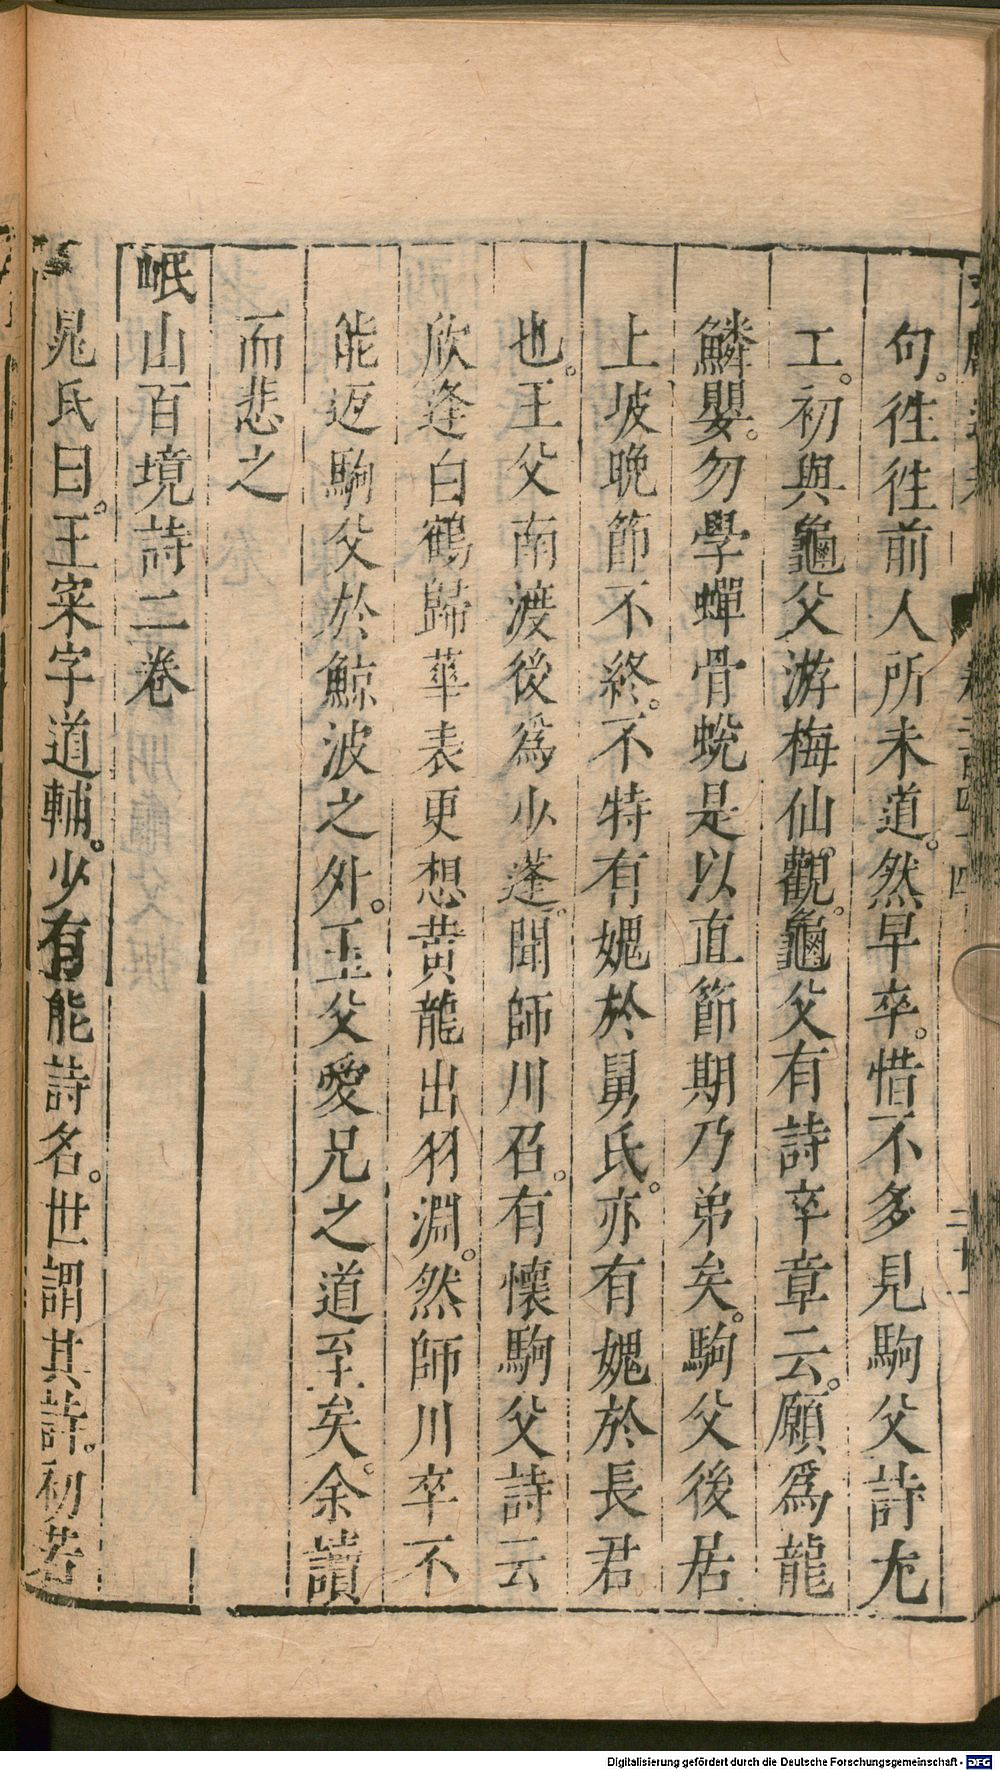 句。徃徃前人所未道。然早卒。惜不多見駒父詩尢
工。初與龜父游梅仙觀。龜父有詩卒章云。願爲龍
鱗嬰。勿學蟬骨蛻是以直節期乃弟矣。駒父後居
上坡晚節不終。不特有媿於舅氏。亦有媿於長君
也。王父南渡後爲少蓬。聞師川召。有懷駒父詩云
欣逢白鶴歸華表更想黄龍出羽淵。然師川卒不
能返駒父於鯨波之外。王父愛兄之道至矣。余讀
而悲之
岷山百境詩二卷
晁氏曰。王寀字道輔。少有能詩名。世謂其詩。初若
Digitalisierung gefördert durch die Deutsche Forschungsgemeinschaft - DFG